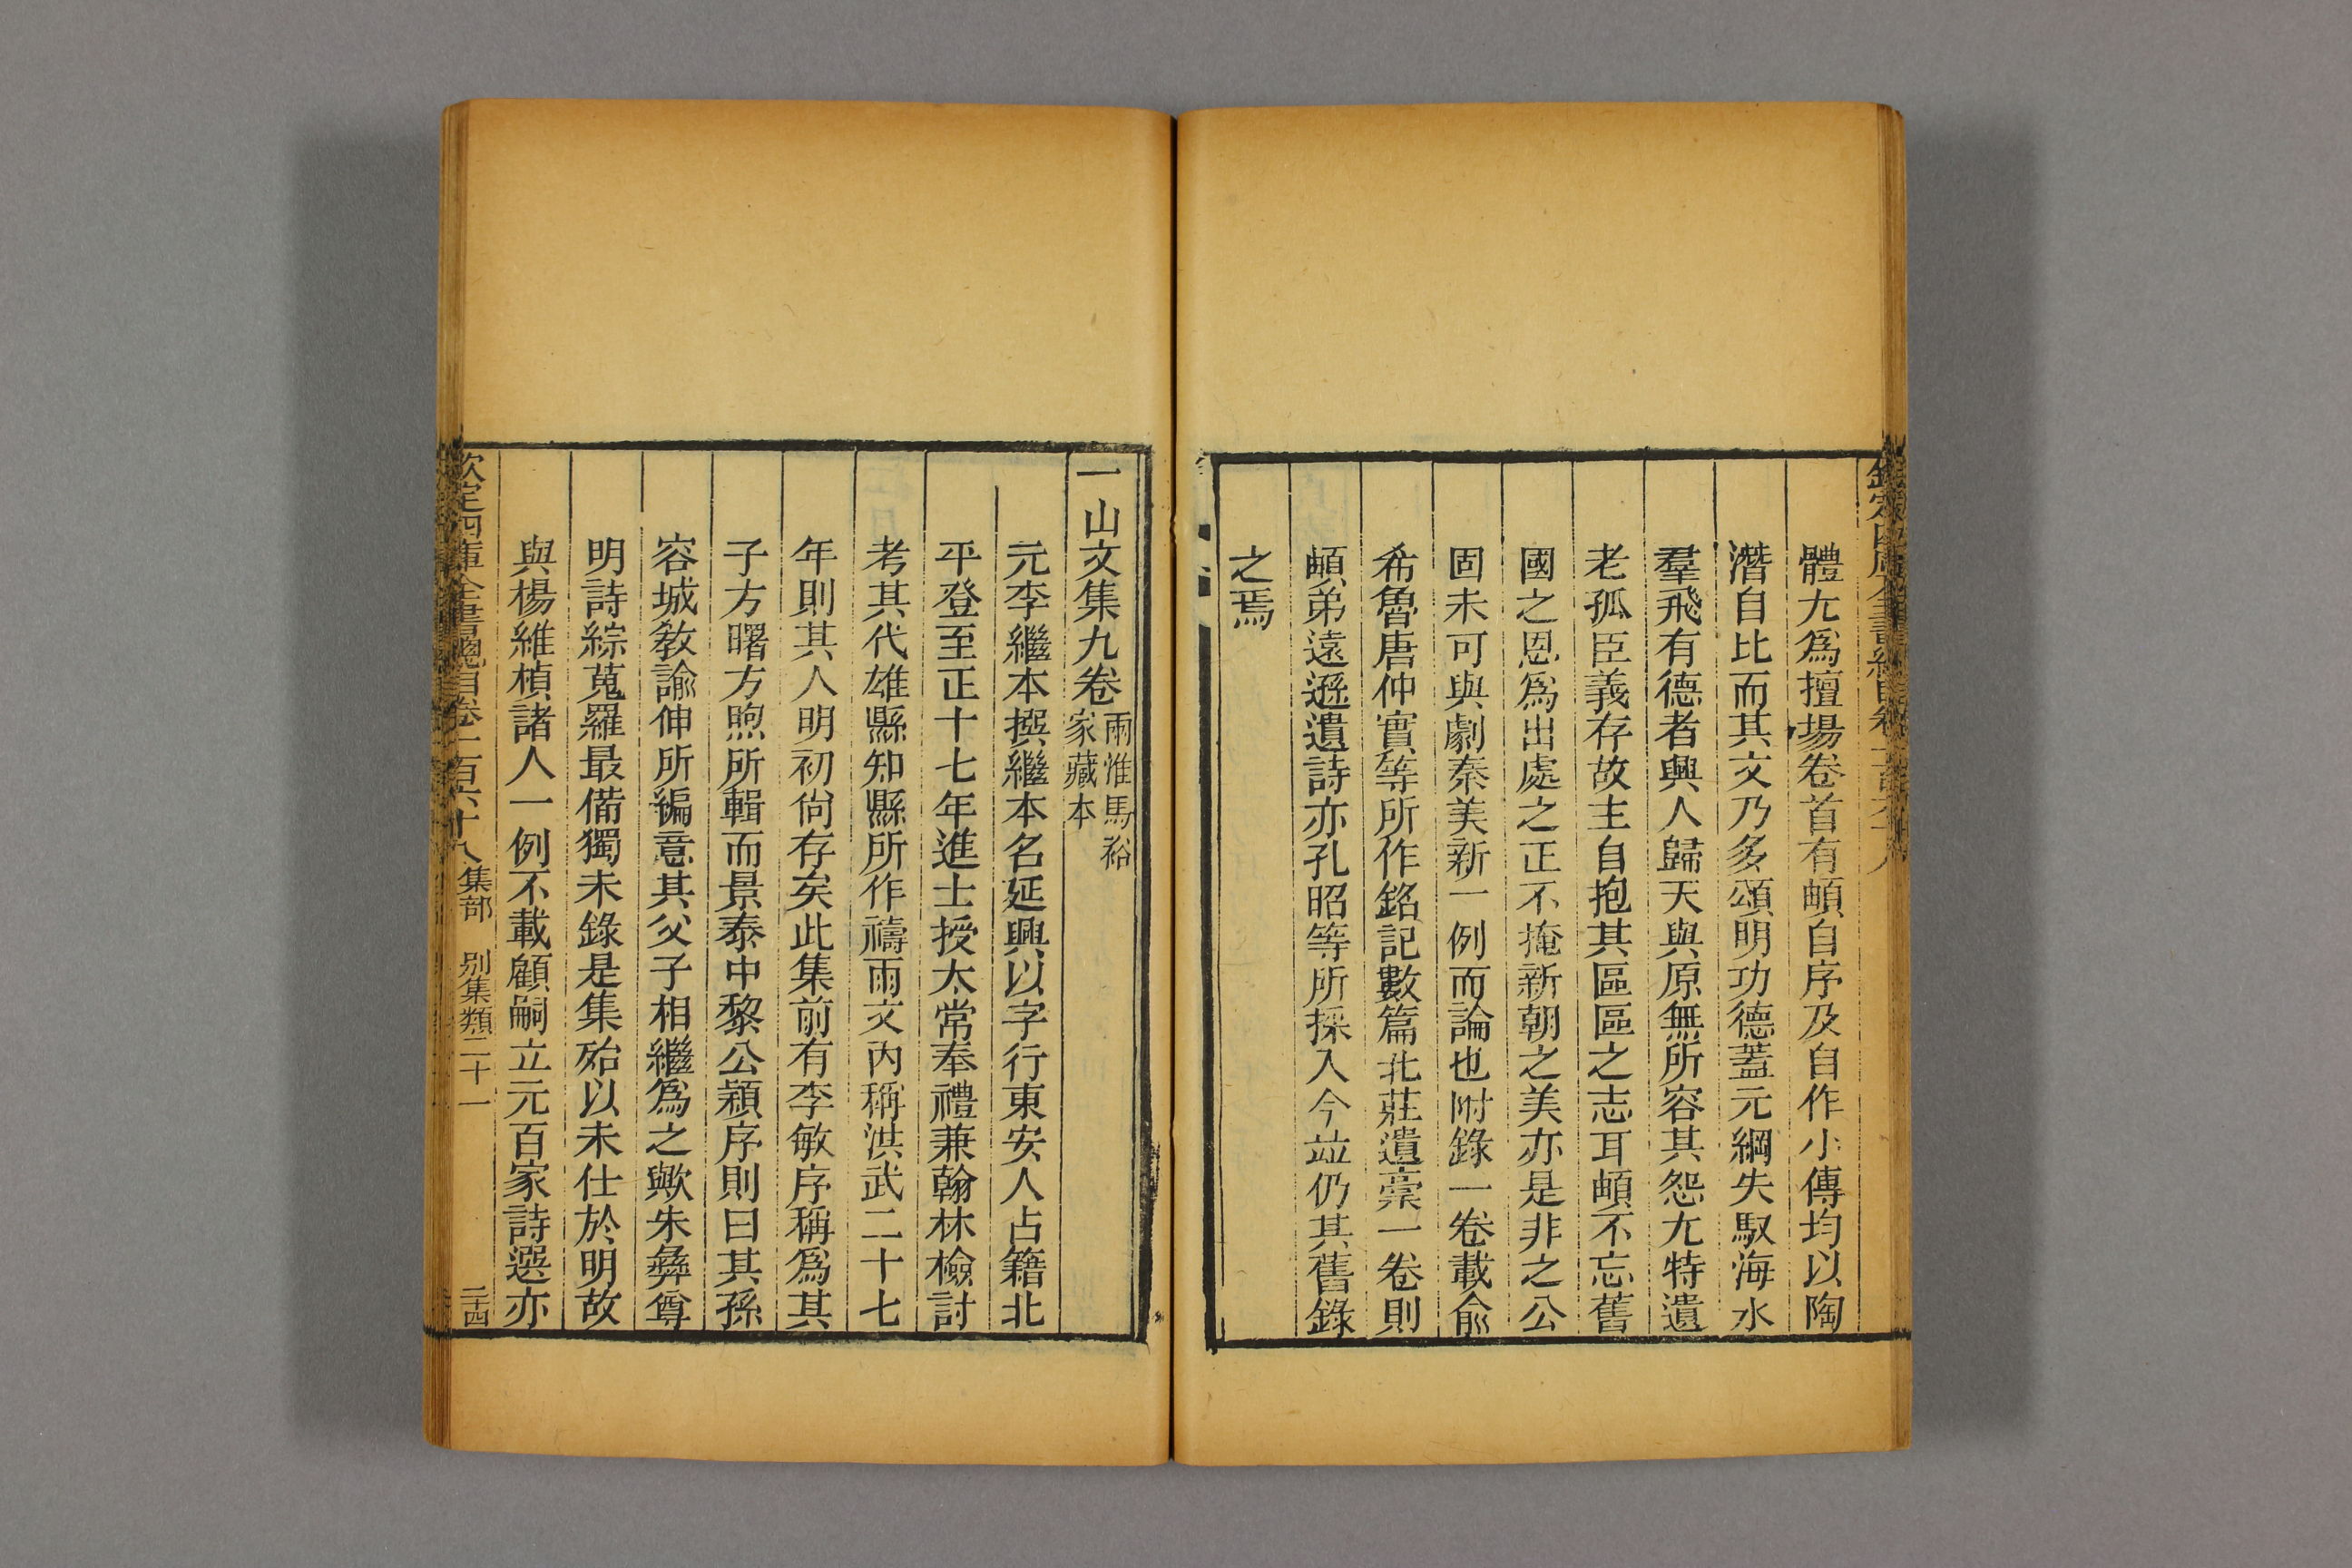 體尢爲擅場卷首有䪼自序及自作小傳均以陶
潛自比而其文乃多頌明功德蓋元綱失馭海水
羣飛有德者興人歸天與原無所容其怨尢特遺
老孤臣義存故主自抱其區區之志耳䪼不忘舊
國之恩爲出處之正不掩新朝之美亦是非之公
固未可與劇秦美新一例而論也附錄一卷載兪
希魯唐仲實等所作銘記數篇北莊遺稾一卷則
䪼弟遠遜遺詩亦孔昭等所採入今竝仍其舊錄
之焉
一山文集九卷
兩淮馬裕
家藏本
元李繼本撰繼本名延興以字行東安人占籍北
平登至正十七年進士授太常奉禮兼翰林檢討
考其代雄縣知縣所作禱雨文內稱洪武二十七
年則其人明初尙存矣此集前有李敏序稱爲其
子方曙方煦所輯而景泰中黎公穎序則曰其孫
容城教諭伸所編意其父子相繼爲之歟朱彝尊
明詩綜蒐羅最備獨未錄是集殆以未仕於明故
與楊維楨諸人一例不載顧嗣立元百家詩選亦
欽定四庫全書總目卷一百六十八 集部 別集類二十一 二十四